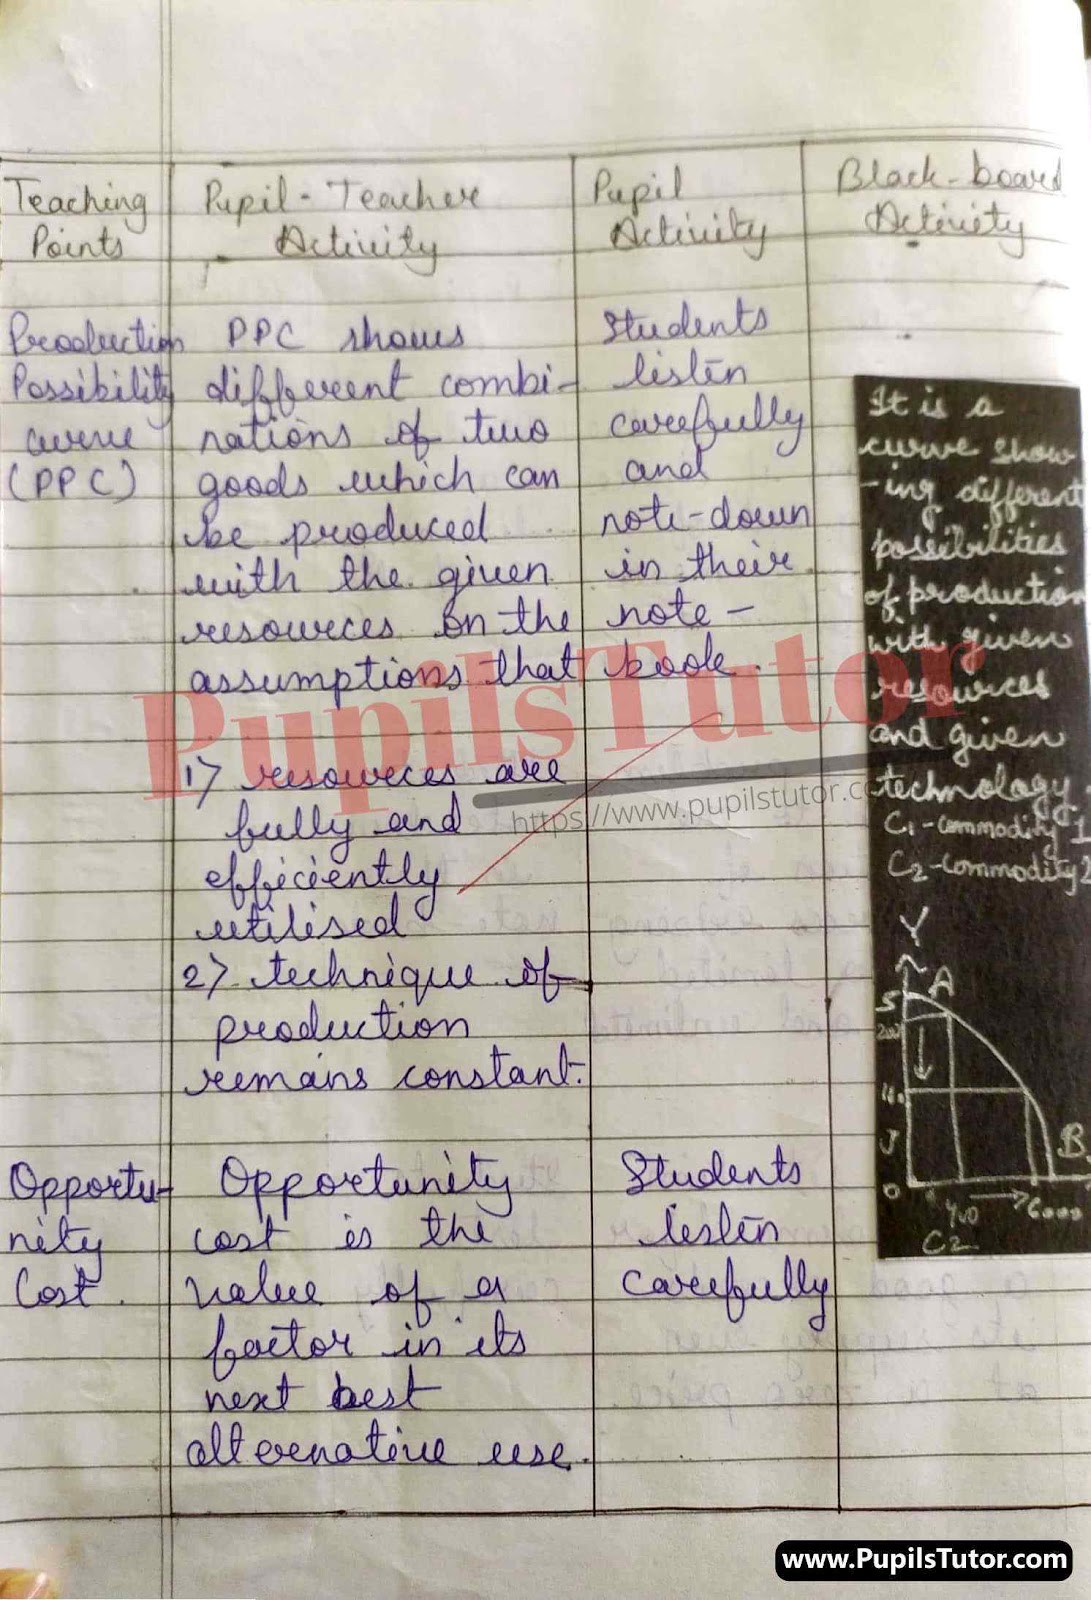 Teaching Points
Pupil-Teacher Activity
Pupil Activity
Black-board Activity
Production
Possibility
curve
(PPC)
PPC shows
different combi-
nations of two
goods which can
be produced
with the given
resources on the
assumptions that
1) resources are
fully and
efficiently
utilised
2) technique of
production
remains constant.
Students
listen
carefully
and
note-down
in their
note-
book.
It is a
curve show
-ing different
possibilities
of production
with given
resources
and given
technology
C1-Commodity 1
C2-Commodity 2
Y
A
5
B
0
400
6000
C2
Opportu-
nity
Cost.
Opportunity
cost is the
value of a
factor in its
next best
alternative use.
Students
listen
carefully
PupilsTutor
https://www.pupilstutor.co
www.PupilsTutor.com